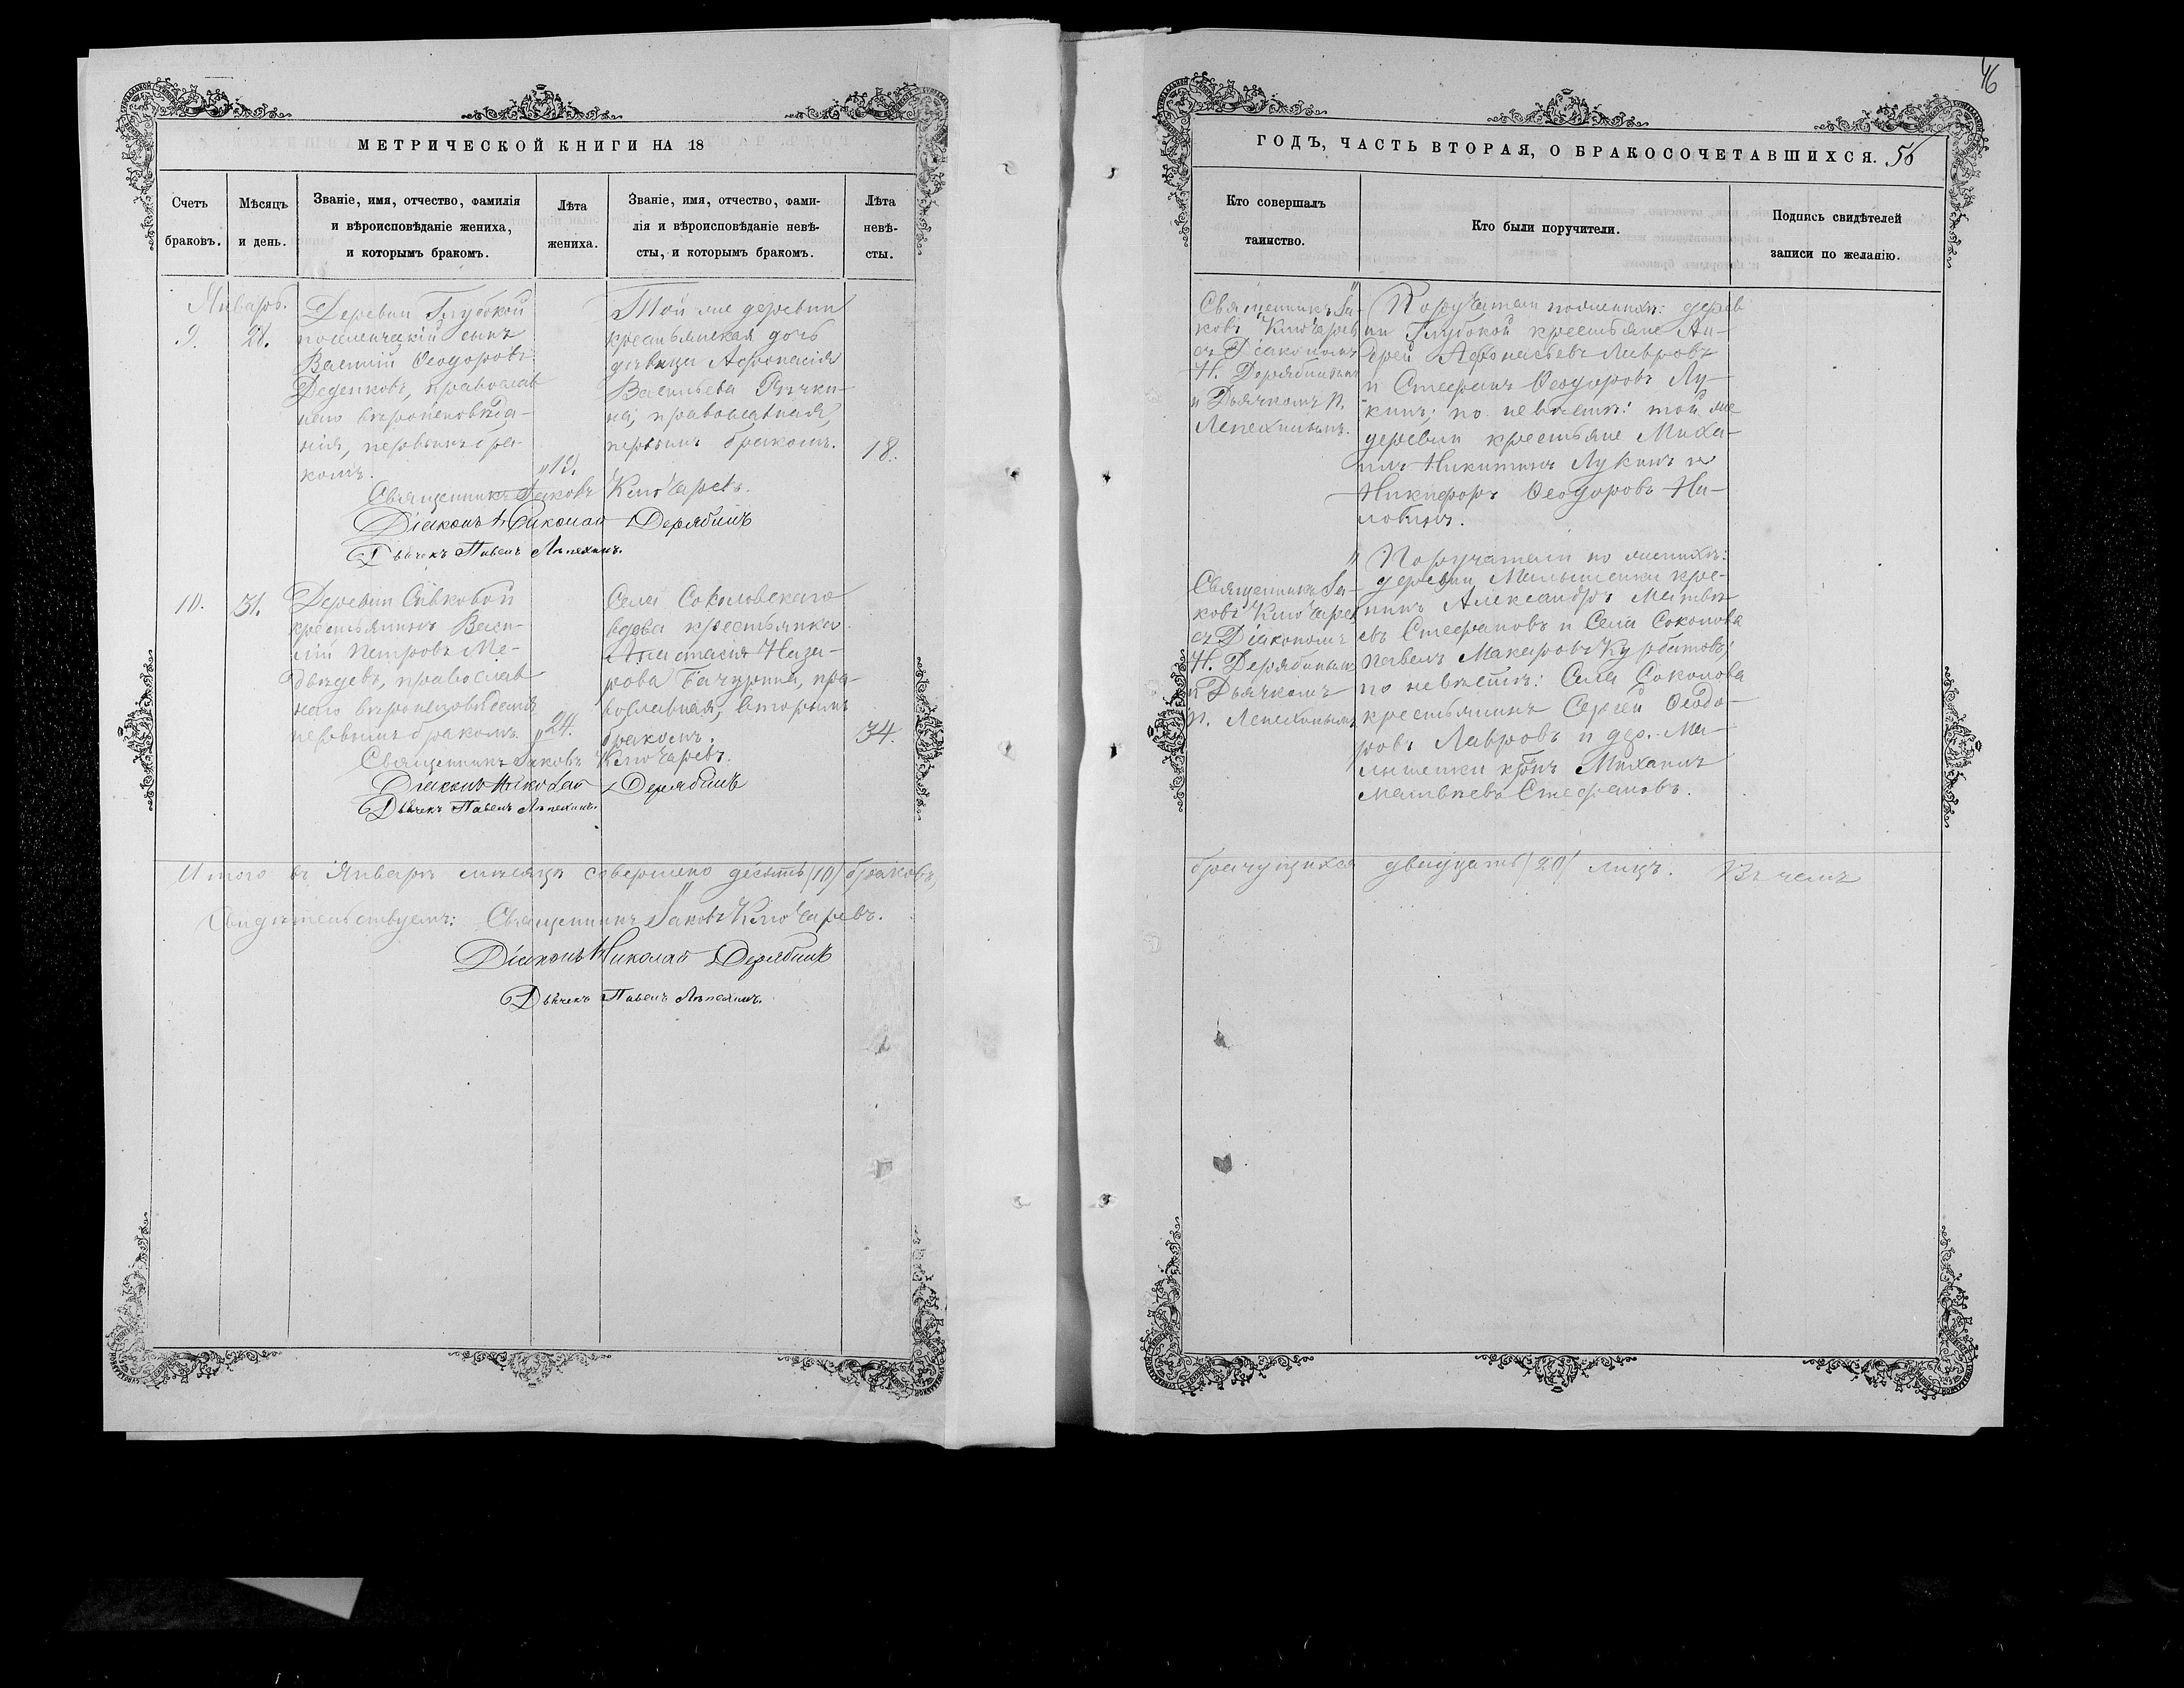 МЕТРИЧЕСКОЙ КНИГИ НА 18
Счетъ браковъ.
Мѣсяцъ и день.
Званіе, имя, отчество, фамилія
и вѣроисповѣданіе жениха,
и которымъ бракомъ.
Лѣта
жениха.
Званіе, имя, отчество, фами-
лія и вѣроисповѣданіе невѣ-
сты, и которымъ бракомъ.
Лѣта
невѣ-
сты.
Январь.
9.
28.
Деревни Глубокой
поселенческій сынъ
Василій Ѳеодоровъ
Деденковъ, православ
наго вѣроисповѣда-
нія, первымъ бра-
комъ.
Той же деревни
крестьянская дочь
дѣвица Аѳонасія
Васильева Рѣчки-
на, православная,
первымъ бракомъ.
18.
Священникъ Іаковъ Ключаревъ.
Діаконъ Николай Дерябинъ
Дьячекъ Павелъ Лѣпехинъ.
10.
31.
Деревни Сивковой
крестьянинъ Васи-
лій Петровъ Ме-
дѣдевъ, православ
наго вѣроисповѣданія
первымъ бракомъ.
24.
Села Соколовскаго
вдова крестьянка
Анастасія Наза-
рова Бачурина, пра-
вославная, вторымъ
бракомъ.
34.
Священникъ Іаковъ Ключаревъ.
Діаконъ Николай Дерябинъ
Дьячекъ Павелъ Лѣпехинъ.
Итого въ Январѣ мѣсяцѣ совершено десять (10) браковъ,
Свидѣтельствуемъ: Священникъ Іаковъ Ключаревъ.
Діаконъ Николай Дерябинъ
Дьячекъ Павелъ Лѣпехинъ.
46
ГОДЪ, ЧАСТЬ ВТОРАЯ, О БРАКОСОЧЕТАВШИХСЯ. 56
Кто совершалъ
таинство.
Кто были поручители.
Подпись свидѣтелей
записи по желанію.
Священникъ Іа-
ковъ Ключаревъ
съ Діакономъ
Н. Дерябинымъ
и Дьячкомъ П.
Лепехинымъ.
Поручатели по женихѣ: дерев
ни Глубокой крестьяне Ан-
дрей Аѳонасьевъ Лавровъ
и Стефанъ Ѳеодоровъ Лу-
кинъ; по невѣстѣ: той же
деревни крестьяне Миха-
илъ Никитинъ Лукинъ и
Никифоръ Ѳеодоровъ Ни-
Священникъ Іа-
ковъ Ключарев
съ Діакономъ
Н. Дерябинымъ
и Дьячкомъ
П. Лепехинымъ
Поручатели по женихѣ:
деревни Малышенки крес-
нинъ Александръ Матвѣ
евъ Стефановъ и Села Соколова
Павелъ Макаровъ Курбатовъ;
по невѣстѣ: Села Соколова
крестьянинъ Сергѣй Ѳеодо-
ровъ Лавровъ и дер. Ма-
лышенки крнъ Михаилъ
Матвѣевъ Стефановъ.
брачущихся двадцать (20) лицъ. Въ чемъ